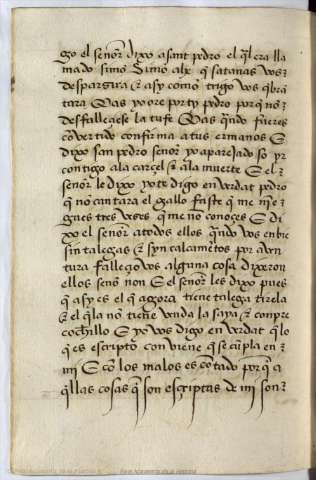 go el señor dixo a sant pedro el q̃l era lla
mado simõ Simõ aze q̃ satanas vos
despargira ⁊ asy comõ trigo vos q̃bra
tara Mas yo ore por ty pedro por q̃ nõ
desfalleçese la tu fe Mas q̃ndo fueres
cõvertido confirma a tus ermanos E
dixo san pedro señor yo aparejado so yr
contigo a la carçel ⁊ a la muerte E el
señor le dixo yo te digo en verdat pedro
q̃ nõ cantara el gallo fuste q̃ me nie
gues tres veses q̃ me nõ conoçes E di
xo el señor a todos ellos q̃ndo vos enbie
sin talegas ⁊ syn calçamẽtos por aven
tura fallesçio vos alguna cosa dixeron
ellos señor non E el señor les dixo pues
q̃ asy es el q̃ agora tiene talega tirela
⁊ el q̃ la nõ tiene venda la saya ⁊ conpre
cochillo E yo vos digo en verdat q̃ lo
q̃ es escripto conviene q̃ se cũpla en
mi E cõ los malos es cõtado por q̃ a
q̃llas cosas q̃ son escriptas de mi son